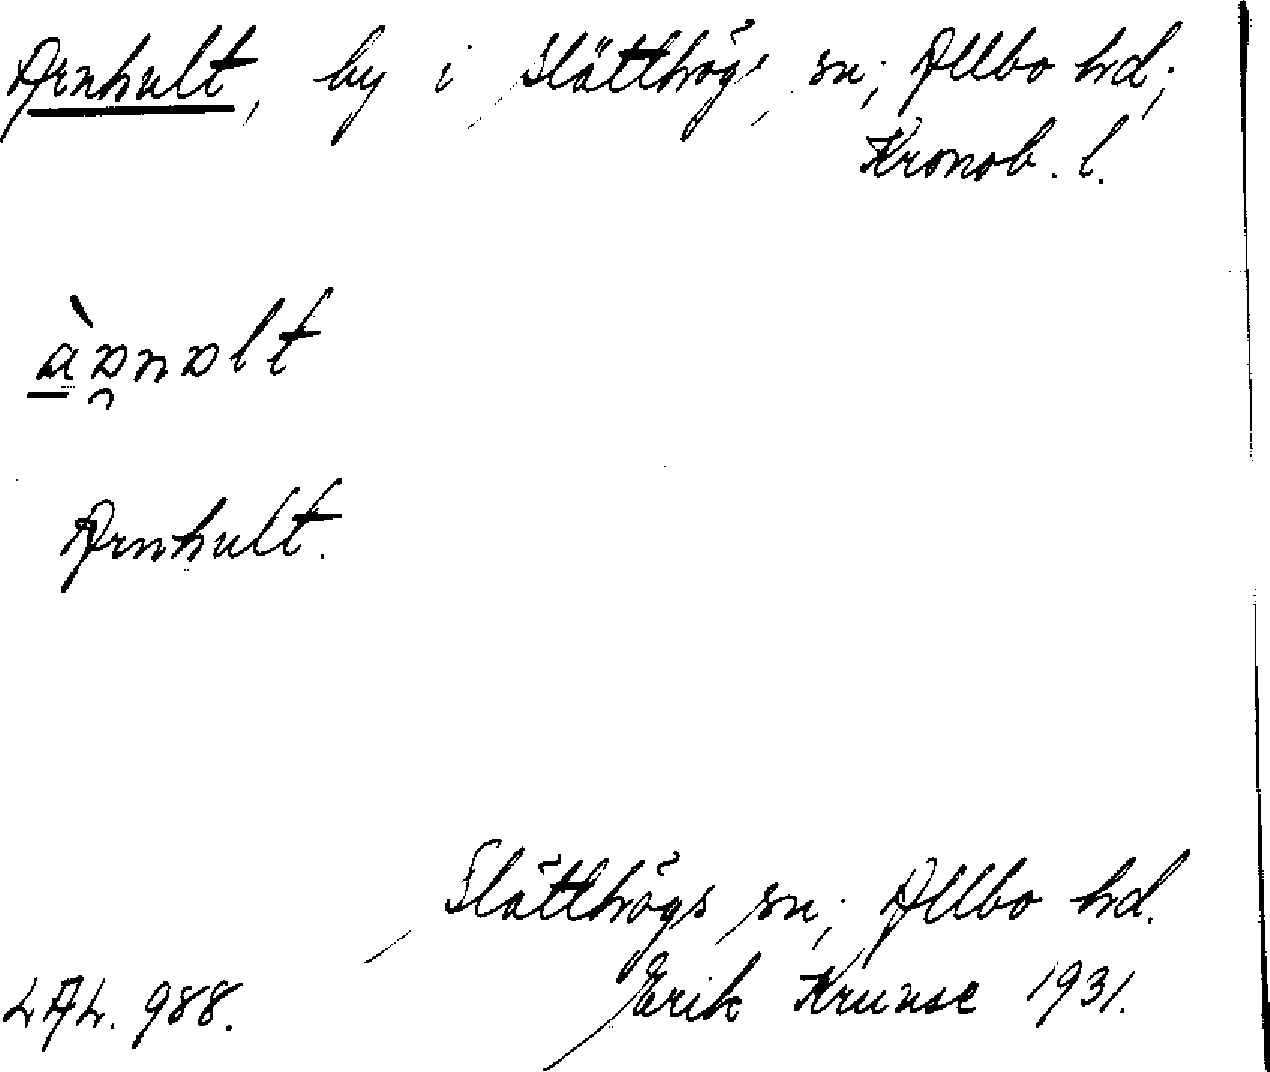 Arnhult, by i Slätthögs sn; Allbo hd;
Kronob. l.
Arnhult.
Slätthögs sn; Allbo hd.
LAL. 988.
Erik Kruuse 1931.